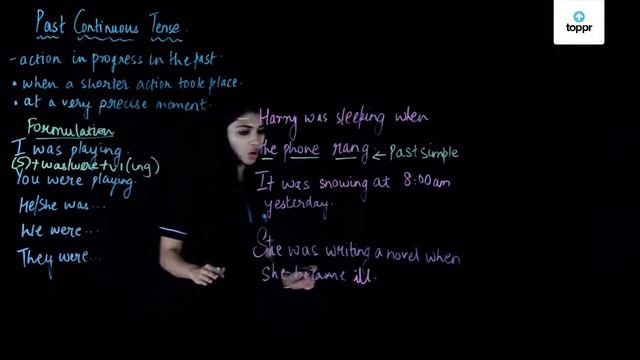 Past Continuous Tense
toppr
- action in progress in the past.
• when a shorter action took place.
• at a very precise moment.
Formulation
I was playing.
(S)+was/were+v1(ing)
You were playing.
He/She was...
We were...
They were...
Harry was sleeping when
the phone rang ← Past simple
It was snowing at 8:00am
yesterday.
She was writing a novel when
she became ill.